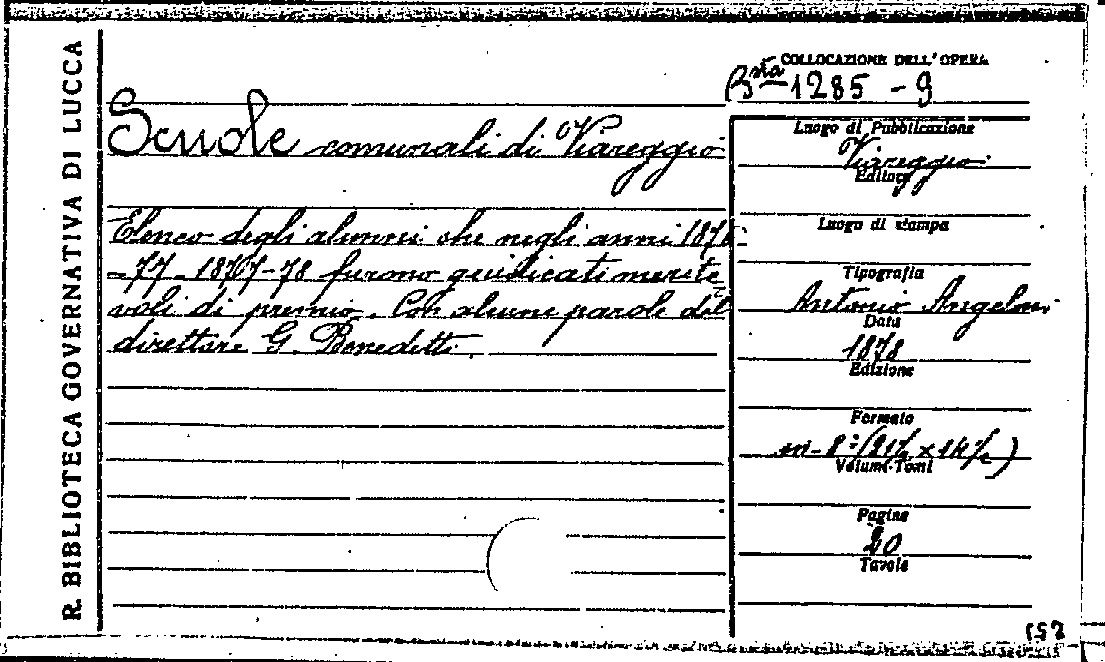 R. BIBLIOTECA GOVERNATIVA DI LUCCA
COLLOCAZIONE DELL'OPERA
Bsta 1285 - 9
Scuole comunali di Viareggio
Elenco degli alunni che negli anni 1876-
-77 - 1877-78 furono giudicati merite
voli di premio. Con alcune parole del
direttore G. Benedetti.
Luogo di Pubblicazione
Viareggio
Editore
Luogo di stampa
Tipografia
Antonio Angeloni
Data
1878
Edizione
Formato
in-8° (21½ x 14½)
Volumi-Tomi
Pagine
20
Tavole